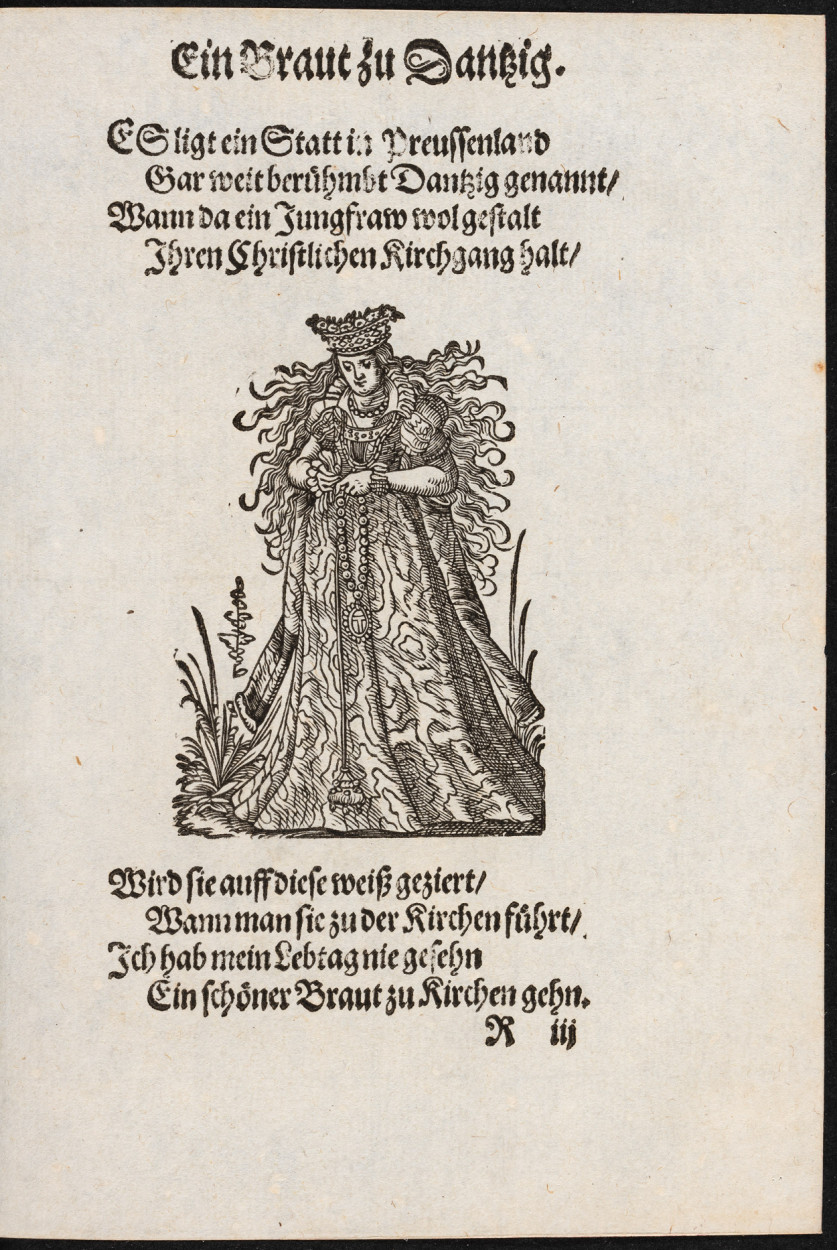 Ein Braut zu Dantzig.
ES ligt ein Statt in Preussenland
Gar weit berühmbt Dantzig genannt/
Wann da ein Jungfraw wolgestalt
Ihren Christlichen Kirchgang halt/
Wird sie auff diese weiß geziert/
Wann man sie zu der Kirchen führt/
Ich hab mein Lebtag nie gesehn
Ein schöner Braut zu Kirchen gehn.
R iij